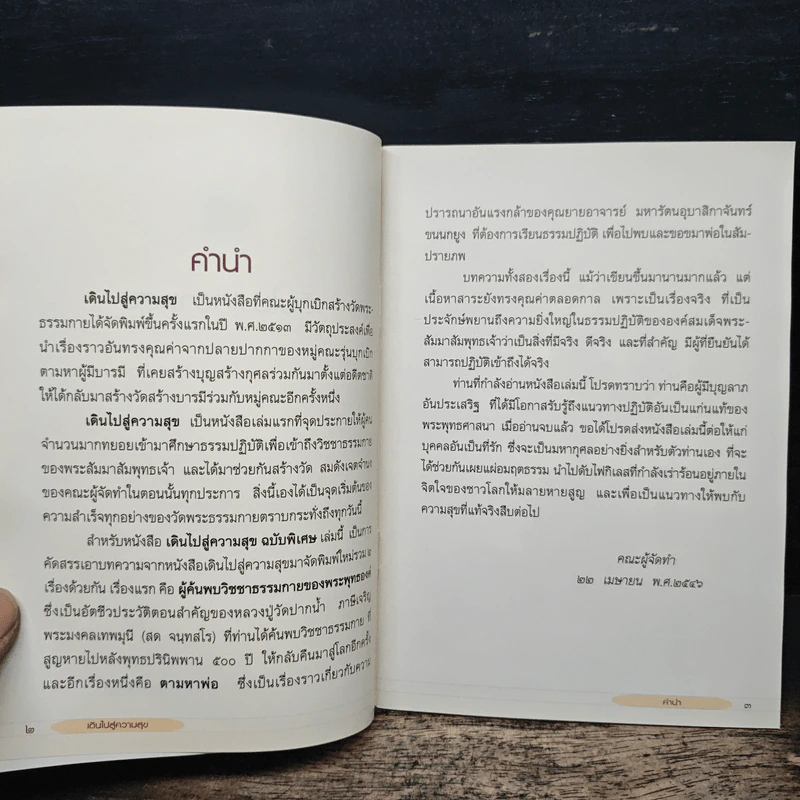 คำนำ
เดินไปสู่ความสุข เป็นหนังสือที่คณะผู้บุกเบิกสร้างวัดพระ-
ธรรมกายได้จัดพิมพ์ขึ้นครั้งแรกในปี พ.ศ.๒๕๑๓ มีวัตถุประสงค์เพื่อ
นำเรื่องราวอันทรงคุณค่าจากปลายปากกาของหมู่คณะรุ่นบุกเบิก
ตามหาผู้มีบารมี ที่เคยสร้างบุญสร้างกุศลร่วมกันมาตั้งแต่อดีตชาติ
ให้ได้กลับมาสร้างวัดสร้างบารมีร่วมกับหมู่คณะอีกครั้งหนึ่ง
เดินไปสู่ความสุข เป็นหนังสือเล่มแรกที่จุดประกายให้ผู้คน
จำนวนมากทยอยเข้ามาศึกษาธรรมปฏิบัติเพื่อเข้าถึงวิชชาธรรมกาย
ของพระสัมมาสัมพุทธเจ้า และได้มาช่วยกันสร้างวัด สมดังเจตจำนง
ของคณะผู้จัดทำในตอนนั้นทุกประการ สิ่งนี้เองได้เป็นจุดเริ่มต้นของ
ความสำเร็จทุกอย่างของวัดพระธรรมกายตราบกระทั่งถึงทุกวันนี้
สำหรับหนังสือ เดินไปสู่ความสุข ฉบับพิเศษ เล่มนี้ เป็นการ
คัดสรรเอาบทความจากหนังสือเดินไปสู่ความสุขมาจัดพิมพ์ใหม่รวม ๒
เรื่องด้วยกัน เรื่องแรก คือ ผู้ค้นพบวิชชาธรรมกายของพระพุทธองค์
ซึ่งเป็นอัตชีวประวัติตอนสำคัญของหลวงปู่วัดปากน้ำ ภาษีเจริญ
พระมงคลเทพมุนี (สด จนฺทสโร) ที่ท่านได้ค้นพบวิชชาธรรมกาย ที่
สูญหายไปหลังพุทธปรินิพพาน ๕๐๐ ปี ให้กลับคืนมาสู่โลกอีกครั้ง
และอีกเรื่องหนึ่งคือ ตามหาพ่อ ซึ่งเป็นเรื่องราวเกี่ยวกับความ
๒ เดินไปสู่ความสุข
ปรารถนาอันแรงกล้าของคุณยายอาจารย์ มหารัตนอุบาสิกาจันทร์
ขนนกยูง ที่ต้องการเรียนธรรมปฏิบัติ เพื่อไปพบและขอขมาพ่อในสัม-
ปรายภพ
บทความทั้งสองเรื่องนี้ แม้ว่าเขียนขึ้นมานานมากแล้ว แต่
เนื้อหาสาระยังทรงคุณค่าตลอดกาล เพราะเป็นเรื่องจริง ที่เป็น
ประจักษ์พยานถึงความยิ่งใหญ่ในธรรมปฏิบัติขององค์สมเด็จพระ-
สัมมาสัมพุทธเจ้าว่าเป็นสิ่งที่มีจริง ดีจริง และที่สำคัญ มีผู้ที่ยืนยันได้
สามารถปฏิบัติเข้าถึงได้จริง
ท่านที่กำลังอ่านหนังสือเล่มนี้ โปรดทราบว่า ท่านคือผู้มีบุญลาภ
อันประเสริฐ ที่ได้มีโอกาสรับรู้ถึงแนวทางปฏิบัติอันเป็นแก่นแท้ของ
พระพุทธศาสนา เมื่ออ่านจบแล้ว ขอได้โปรดส่งหนังสือเล่มนี้ต่อให้แก่
บุคคลอันเป็นที่รัก ซึ่งจะเป็นมหากุศลอย่างยิ่งสำหรับตัวท่านเอง ที่จะ
ได้ช่วยกันเผยแผ่อมฤตธรรม นำไปดับไฟกิเลสที่กำลังเร่าร้อนอยู่ภายใน
จิตใจของชาวโลกให้มลายหายสูญ และเพื่อเป็นแนวทางให้พบกับ
ความสุขที่แท้จริงสืบต่อไป
คณะผู้จัดทำ
๒๒ เมษายน พ.ศ.๒๕๔๖
คำนำ ๓